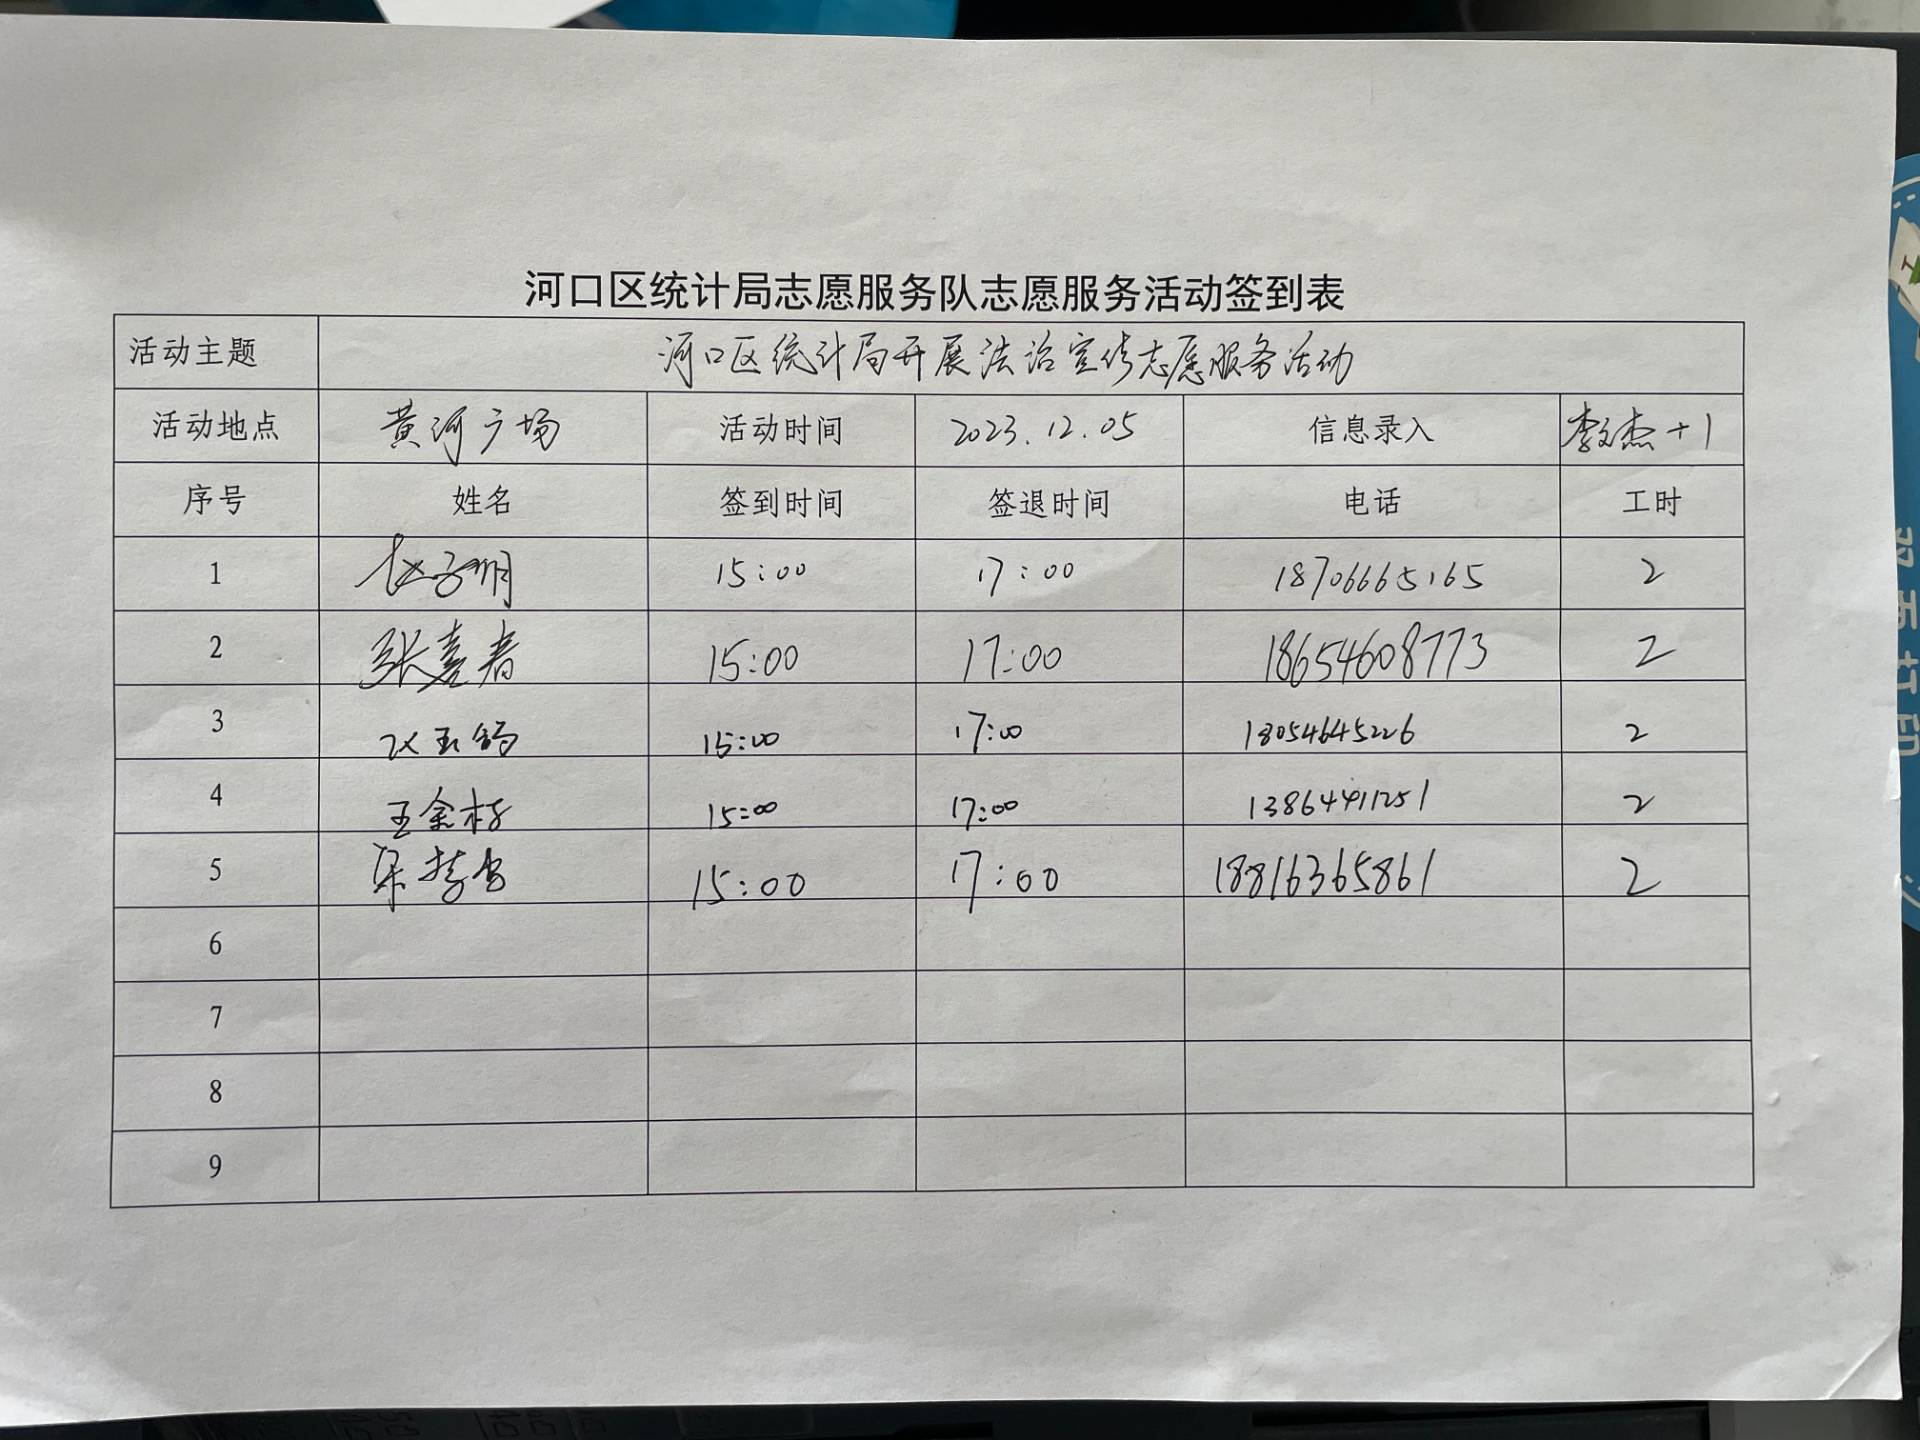 河口区统计局志愿服务队志愿服务活动签到表
活动主题 河口区统计局开展法治宣传志愿服务活动
活动地点 黄河广场 活动时间 2023.12.05 信息录入 李文杰+1
序号 姓名 签到时间 签退时间 电话 工时
1 赵子明 15:00 17:00 18706665165 2
2 张喜春 15:00 17:00 18654608773 2
3 15:00 17:00 18054645226 2
4 王金 15:00 17:00 13864411251 2
5 15:00 17:00 18816365861 2
6
7
8
9